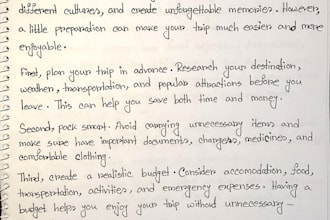 different cultures, and create unforgettable memories. However,
a little preparation can make your trip much easier and more
enjoyable.
First, plan your trip in advance. Research your destination,
weather, transportation, and popular attractions before you
leave. This can help you save both time and money.
Second, pack smart. Avoid carrying unnecessary items and
make sure have important documents, chargers, medicines, and
comfortable clothing.
Third, create a realistic budget. Consider accomodation, food,
transportation, activities, and emergency expenses. Having a
budget helps you enjoy your trip without unnecessary-